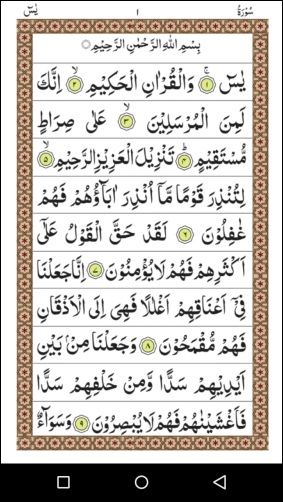 سُوْرَةُ ١ يٰسٓ
بِسْمِ اللّٰهِ الرَّحْمٰنِ الرَّحِيْمِ
يٰسٓ ۚ﴿۱﴾ وَالْقُرْاٰنِ الْحَكِيْمِ ۙ﴿۲﴾ اِنَّكَ
لَمِنَ الْمُرْسَلِيْنَ ۙ﴿۳﴾ عَلٰى صِرَاطٍ
مُّسْتَقِيْمٍ ؕ﴿۴﴾ تَنْزِيْلَ الْعَزِيْزِ الرَّحِيْمِ ۙ﴿۵﴾
لِتُنْذِرَ قَوْمًا مَّاۤ اُنْذِرَ اٰبَآؤُهُمْ فَهُمْ
غٰفِلُوْنَ ﴿۶﴾ لَقَدْ حَقَّ الْقَوْلُ عَلٰٓى
اَكْثَرِهِمْ فَهُمْ لَا يُؤْمِنُوْنَ ﴿۷﴾ اِنَّا جَعَلْنَا
فِيْۤ اَعْنَاقِهِمْ اَغْلٰلًا فَهِيَ اِلَى الْاَذْقَانِ
فَهُمْ مُّقْمَحُوْنَ ﴿۸﴾ وَجَعَلْنَا مِنْۢ بَيْنِ
اَيْدِيْهِمْ سَدًّا وَّمِنْ خَلْفِهِمْ سَدًّا
فَاَغْشَيْنٰهُمْ فَهُمْ لَا يُبْصِرُوْنَ ﴿۹﴾ وَسَوَآءٌ